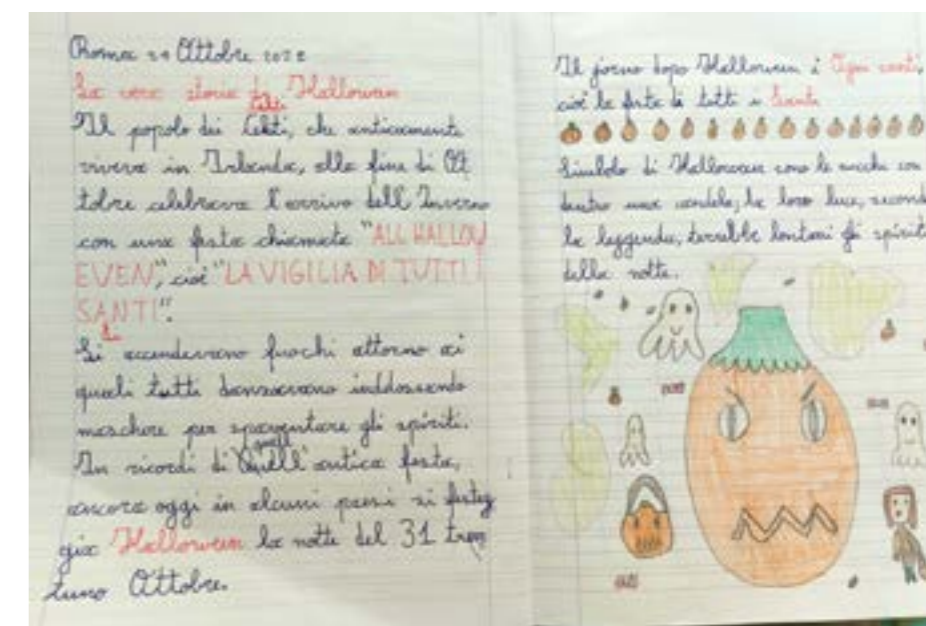 Roma 24 Ottobre 2022
La vera storia di Hallowen
Il popolo dei Celti, che anticamente
Celti
viveva in Irlanda, alla fine di Ot
tobre celebrava l'arrivo dell'Inverno
con una festa chiamata "ALL HALLOW
EVEN", cioè "LA VIGILIA DI TUTTI I
SANTI".
Si accendevano fuochi attorno ai
quali tutti danzavano inddossando
maschere per spaventare gli spiriti.
In ricordi di quell'antica festa,
ancora oggi in alcuni paesi si festeg
gia Halloween la notte del 31 tren
tuno Ottobre.
Il giorno dopo Halloween è Ogni santi,
cioè la festa di tutti i Santi
Simbolo di Halloween sono le zucche con
dentro una candela; la loro luce, secondo
la leggenda, terrebbe lontani gli spiriti
della notte.